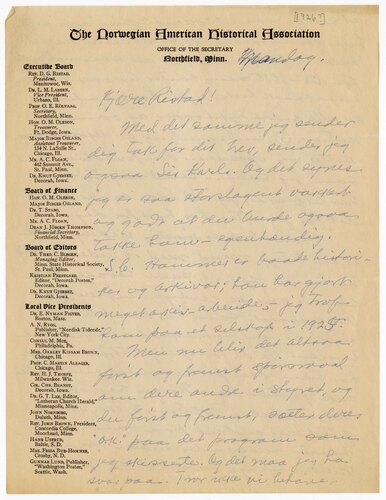 [1926?]
The Norwegian American Historical Association
OFFICE OF THE SECRETARY
Northfield, Minn.
Mandag.
Executive Board
REV. D. G. RISTAD,
President,
Manitowoc, Wis.
DR. L. M. LARSEN,
Vice President,
Urbana, Ill.
PROF. O. E. RÖLVAAG,
Secretary,
Northfield, Minn.
HON. O. M. OLESON,
Treasurer,
Ft. Dodge, Iowa
MAJOR BIRGER OSLAND,
Assistant Treasurer,
134 N. LaSalle St.
Chicago, Ill.
MR. A. C. FLOAN,
442 Summit Ave.,
St. Paul, Minn.
DR. KNUT GJERSET,
Decorah, Iowa.
Board of Finance
HON. O. M. OLESON,
MAJOR BIRGER OSLAND,
DR. T. STABO,
Decorah, Iowa.
MR. A. C. FLOAN,
DEAN J. JÖRGEN THOMPSON,
Financial Secretary,
Northfield, Minn.
Board of Editors
DR. THEO. C. BLEGEN,
Managing Editor,
Minn. State Historical Society,
St. Paul, Minn.
KRISTIAN PRESTGARD,
Editor, "Decorah Posten,"
Decorah, Iowa.
DR. KNUT GJERSET,
Decorah, Iowa.
Local Vice Presidents
DR. E. NYMAN FIGVED,
Boston, Mass.
A. N. RYGG,
Publisher, "Nordisk Tidende,"
New York City.
CONSUL M. MOE,
Philadelphia, Pa.
MRS. OAKLEY KISSAM BROWN,
Chicago, Ill.
PROF. C. MARTIN ALSAGER,
Chicago, Ill.
REV. H. J. THORPE,
Milwaukee, Wis.
COL. CHR. BRANDT,
Decorah, Iowa.
DR. G. T. LEE, Editor,
"Lutheran Church Herald,"
Minneapolis, Minn.
JOHN NORDBOM,
Duluth, Minn.
REV. JOHN BROWN, President,
Concordia College,
Moorhead, Minn.
HANS USTRUD,
Baltic, S. D.
MRS. FRIDA BUE-HOMNES,
Crosby, N. D.
GUNNAR LUND, Publisher,
"Washington Posten,"
Seattle, Wash.
Kjære Ristad!
Med det samme jeg sender
dig tak for dit brev, sender jeg
ogsaa Sir Karls. Og det synes
jeg er saa storslagent vakkert
og godt at du burde ogsaa
takke ham — egenhændig.
S. C. Hammer er baade histori-
ker og arkivar; han har gjort
meget arkiv-arbeide, — jeg tror
som paa et selskap i 1925.
Men nu blir det altsaa
først og fremst spørsmaal
om dere andre i Styret, og
du først og fremst, sætter deres
"ok" paa det program som
jeg skisserte. Og det maa jeg ha
svar paa. Tror ikke vi kunne